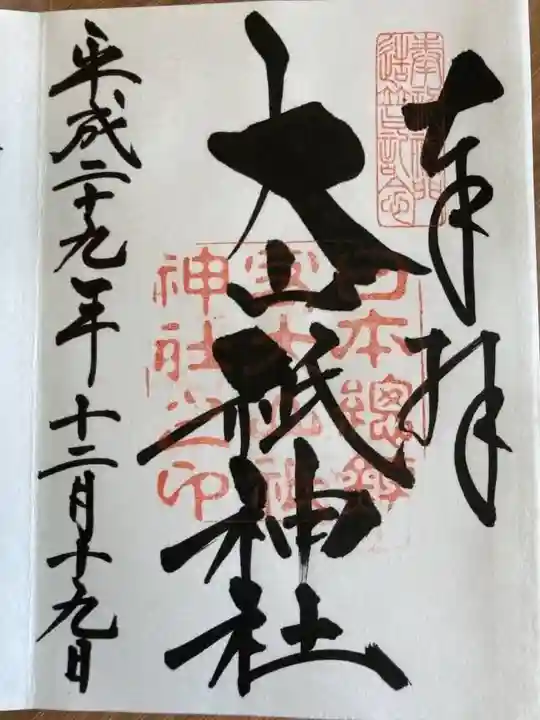 奉拝
大山祇神社
平成二十九年十二月十九日
日本總鎮
神社之印